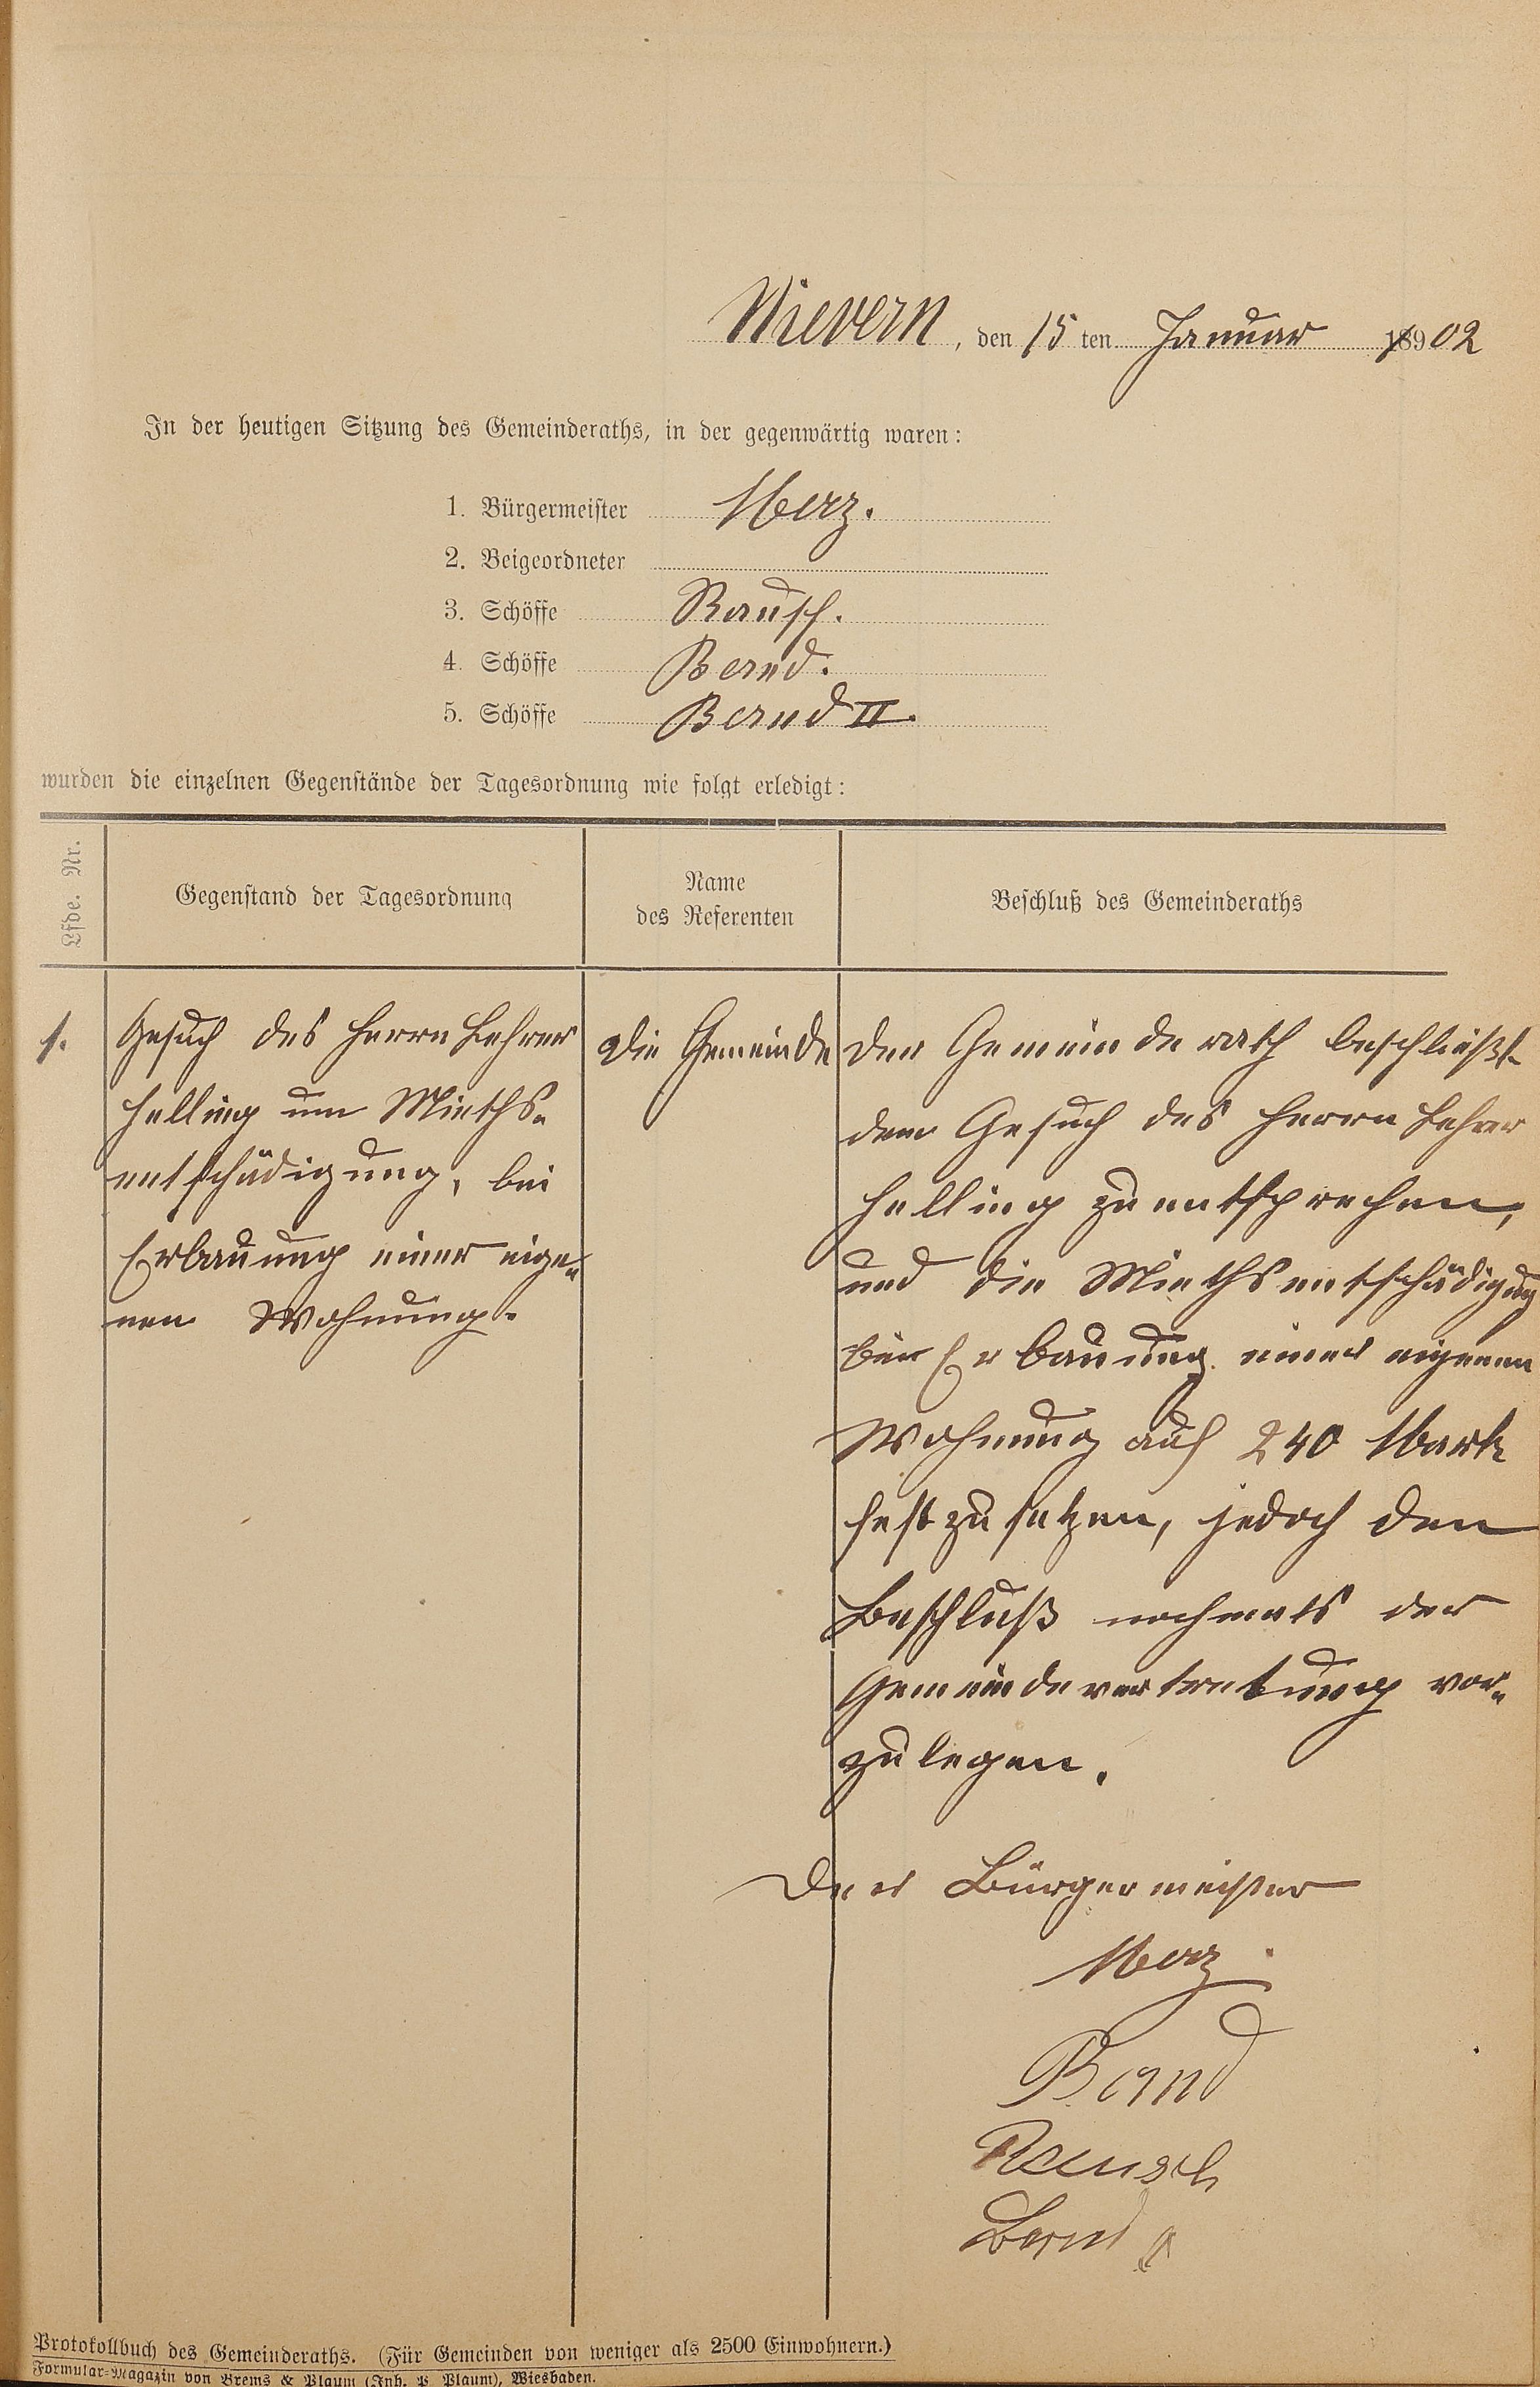 Nievern, den 15 ten Januar 1902
In der heutigen Sitzung des Gemeinderaths, in der gegenwärtig waren:
1. Bürgermeister Merz.
2. Beigeordneter
3. Schöffe Rausch.
4. Schöffe Bernd.
5. Schöffe Bernd II.
wurden die einzelnen Gegenstände der Tagesordnung wie folgt erledigt:
Lfde. Nr.
Gegenstand der Tagesordnung
Name
des Referenten
Beschluß des Gemeinderaths
1.
Gesuch des Herrn Lehrer
Helling um Mieths-
entschädigung, bei
Erbauung einer eige-
nen Wohnung.
Die Gemeinde
Der Gemeinderath beschließt
dem Gesuch des Herrn Lehrer
Helling zu entsprechen,
und die Miethsentschädigung
bei Erbauung einer eigenen
Wohnung auf 240 Mark
festzusetzen, jedoch den
Beschluß nochmals der
Gemeindevertretung vor-
zulegen.
Der Bürgermeister
Merz.
Bernd
Rausch
Bernd II
Protokollbuch des Gemeinderaths. (Für Gemeinden von weniger als 2500 Einwohnern.)
Formular-Magazin von Brems & Plaum (Inh. P. Plaum), Wiesbaden.